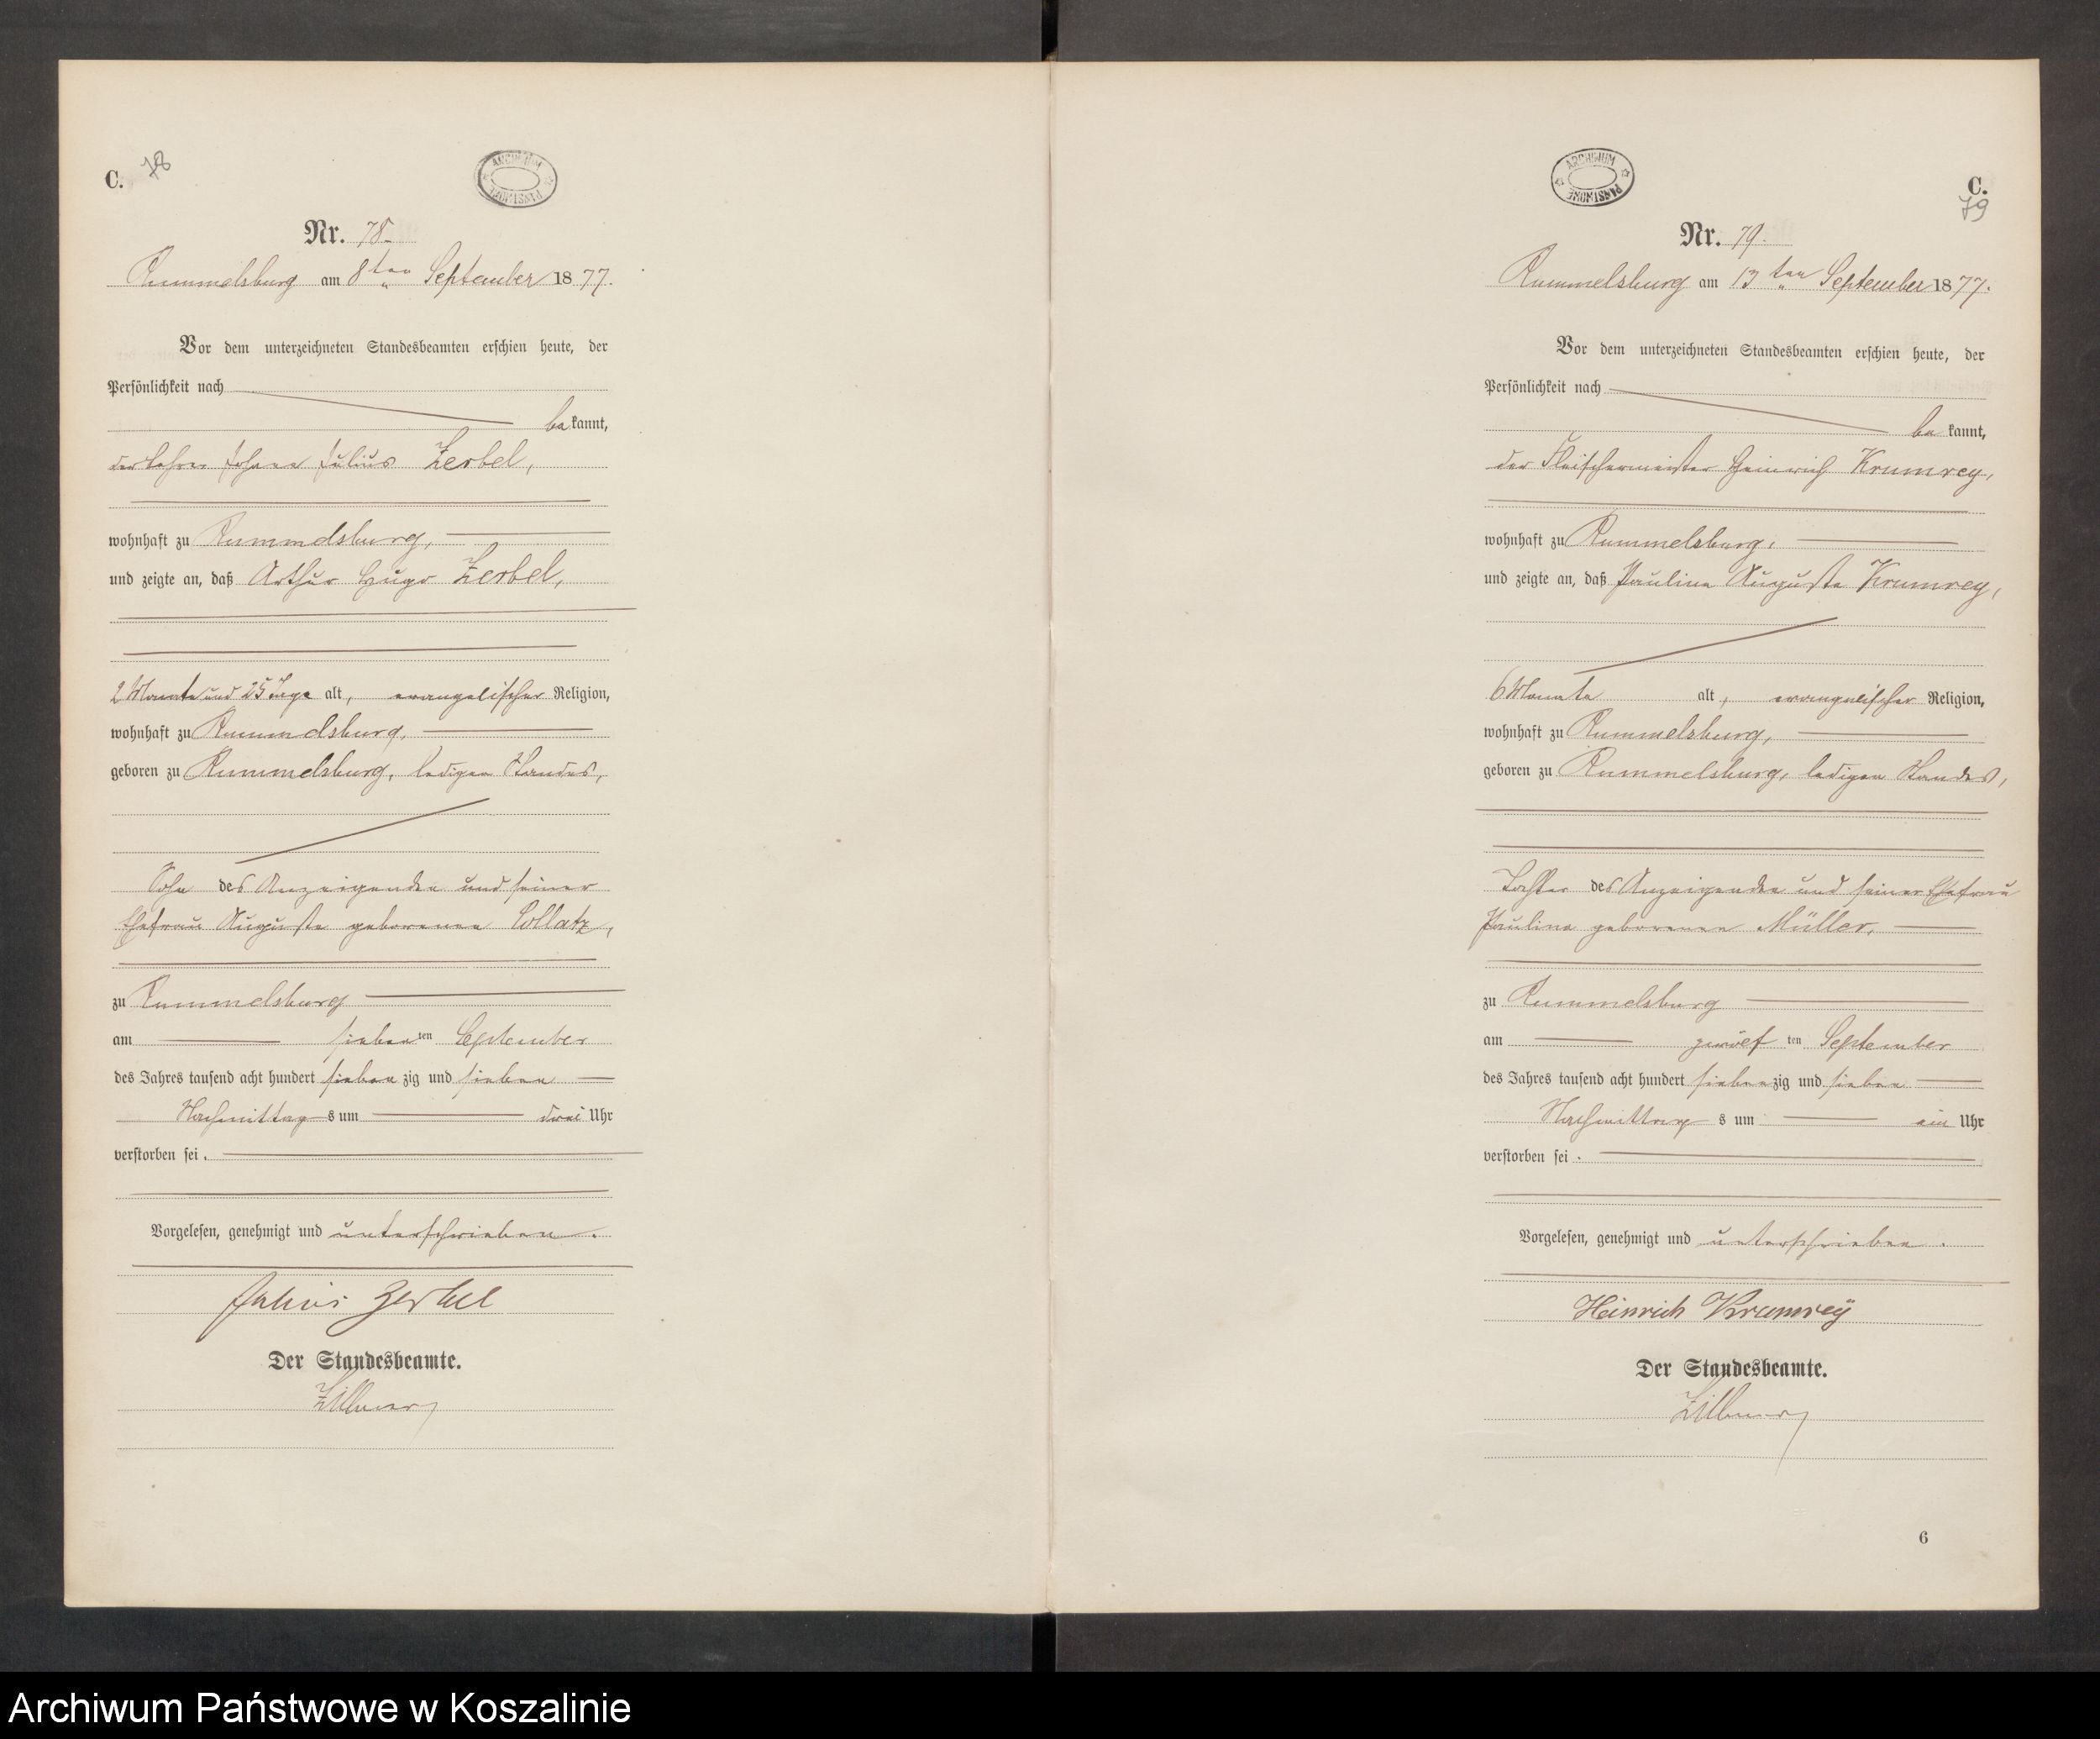 C. 78
ARCHIWUM PAŃSTWOWE
Nr. 78.
Rummelsburg am 8ten September 1877.
Vor dem unterzeichneten Standesbeamten erschien heute, der
Persönlichkeit nach
bekannt,
der Lehrer Johann Julius Zerbel,
wohnhaft zu Rummelsburg,
und zeigte an, daß Arthur Hugo Zerbel,
2 Monate und 25 Tage alt, evangelischer Religion,
wohnhaft zu Rummelsburg,
geboren zu Rummelsburg, ledigen Standes,
Sohn des Anzeigenden und seiner
Ehefrau Auguste geborenen Collatz,
zu Rummelsburg
am siebenten September
des Jahres tausend acht hundert siebenzig und sieben
Nachmittags um drei Uhr
verstorben sei.
Vorgelesen, genehmigt und unterschrieben.
Julius Zerbel
Der Standesbeamte.
C.
79
ARCHIWUM PAŃSTWOWE
Nr. 79.
Rummelsburg am 13ten September 1877.
Vor dem unterzeichneten Standesbeamten erschien heute, der
Persönlichkeit nach
bekannt,
der Fleischermeister Heinrich Krumrey,
wohnhaft zu Rummelsburg,
und zeigte an, daß Pauline Auguste Krumrey,
6 Monate alt, evangelischer Religion,
wohnhaft zu Rummelsburg,
geboren zu Rummelsburg, ledigen Standes,
Tochter des Anzeigenden und seiner Ehefrau
Pauline geborenen Müller,
zu Rummelsburg
am zwölften September
des Jahres tausend acht hundert siebenzig und sieben
Nachmittags um ein Uhr
verstorben sei.
Vorgelesen, genehmigt und unterschrieben.
Heinrich Krumrey
Der Standesbeamte.
6
Archiwum Państwowe w Koszalinie